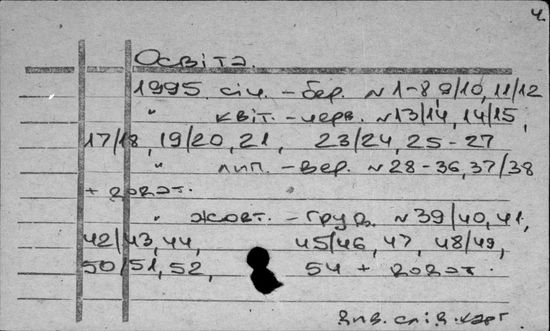 4.
Освіта.
1995 січ. - бер. N 1-8, 9/10, 11/12
" квіт. - черв. N 13/14, 14/15,
17/18, 19/20, 21, 23/24, 25-27
" лип. - вер. N 28-36, 37/38
+ додат.
" жовт. - груд. N 39/40, 41,
42/43, 44, 45/46, 47, 48/49,
50/51, 52, 54 + додат.
див. слід. карт